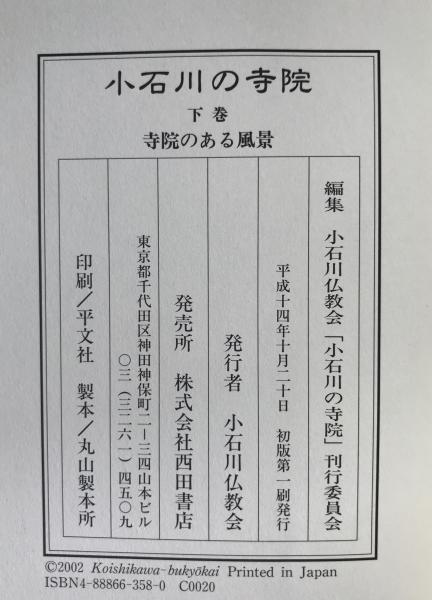 小石川の寺院
下巻
寺院のある風景
編集　小石川仏教会「小石川の寺院」刊行委員会
平成十四年十月二十日　初版第一刷発行
発行者　小石川仏教会
発売所　株式会社西田書店
東京都千代田区神田神保町二―三四山本ビル
〇三（三二六一）四五〇九
印刷／平文社　製本／丸山製本所
©2002 Koishikawa-bukyōkai Printed in Japan
ISBN4-88866-358-0 C0020